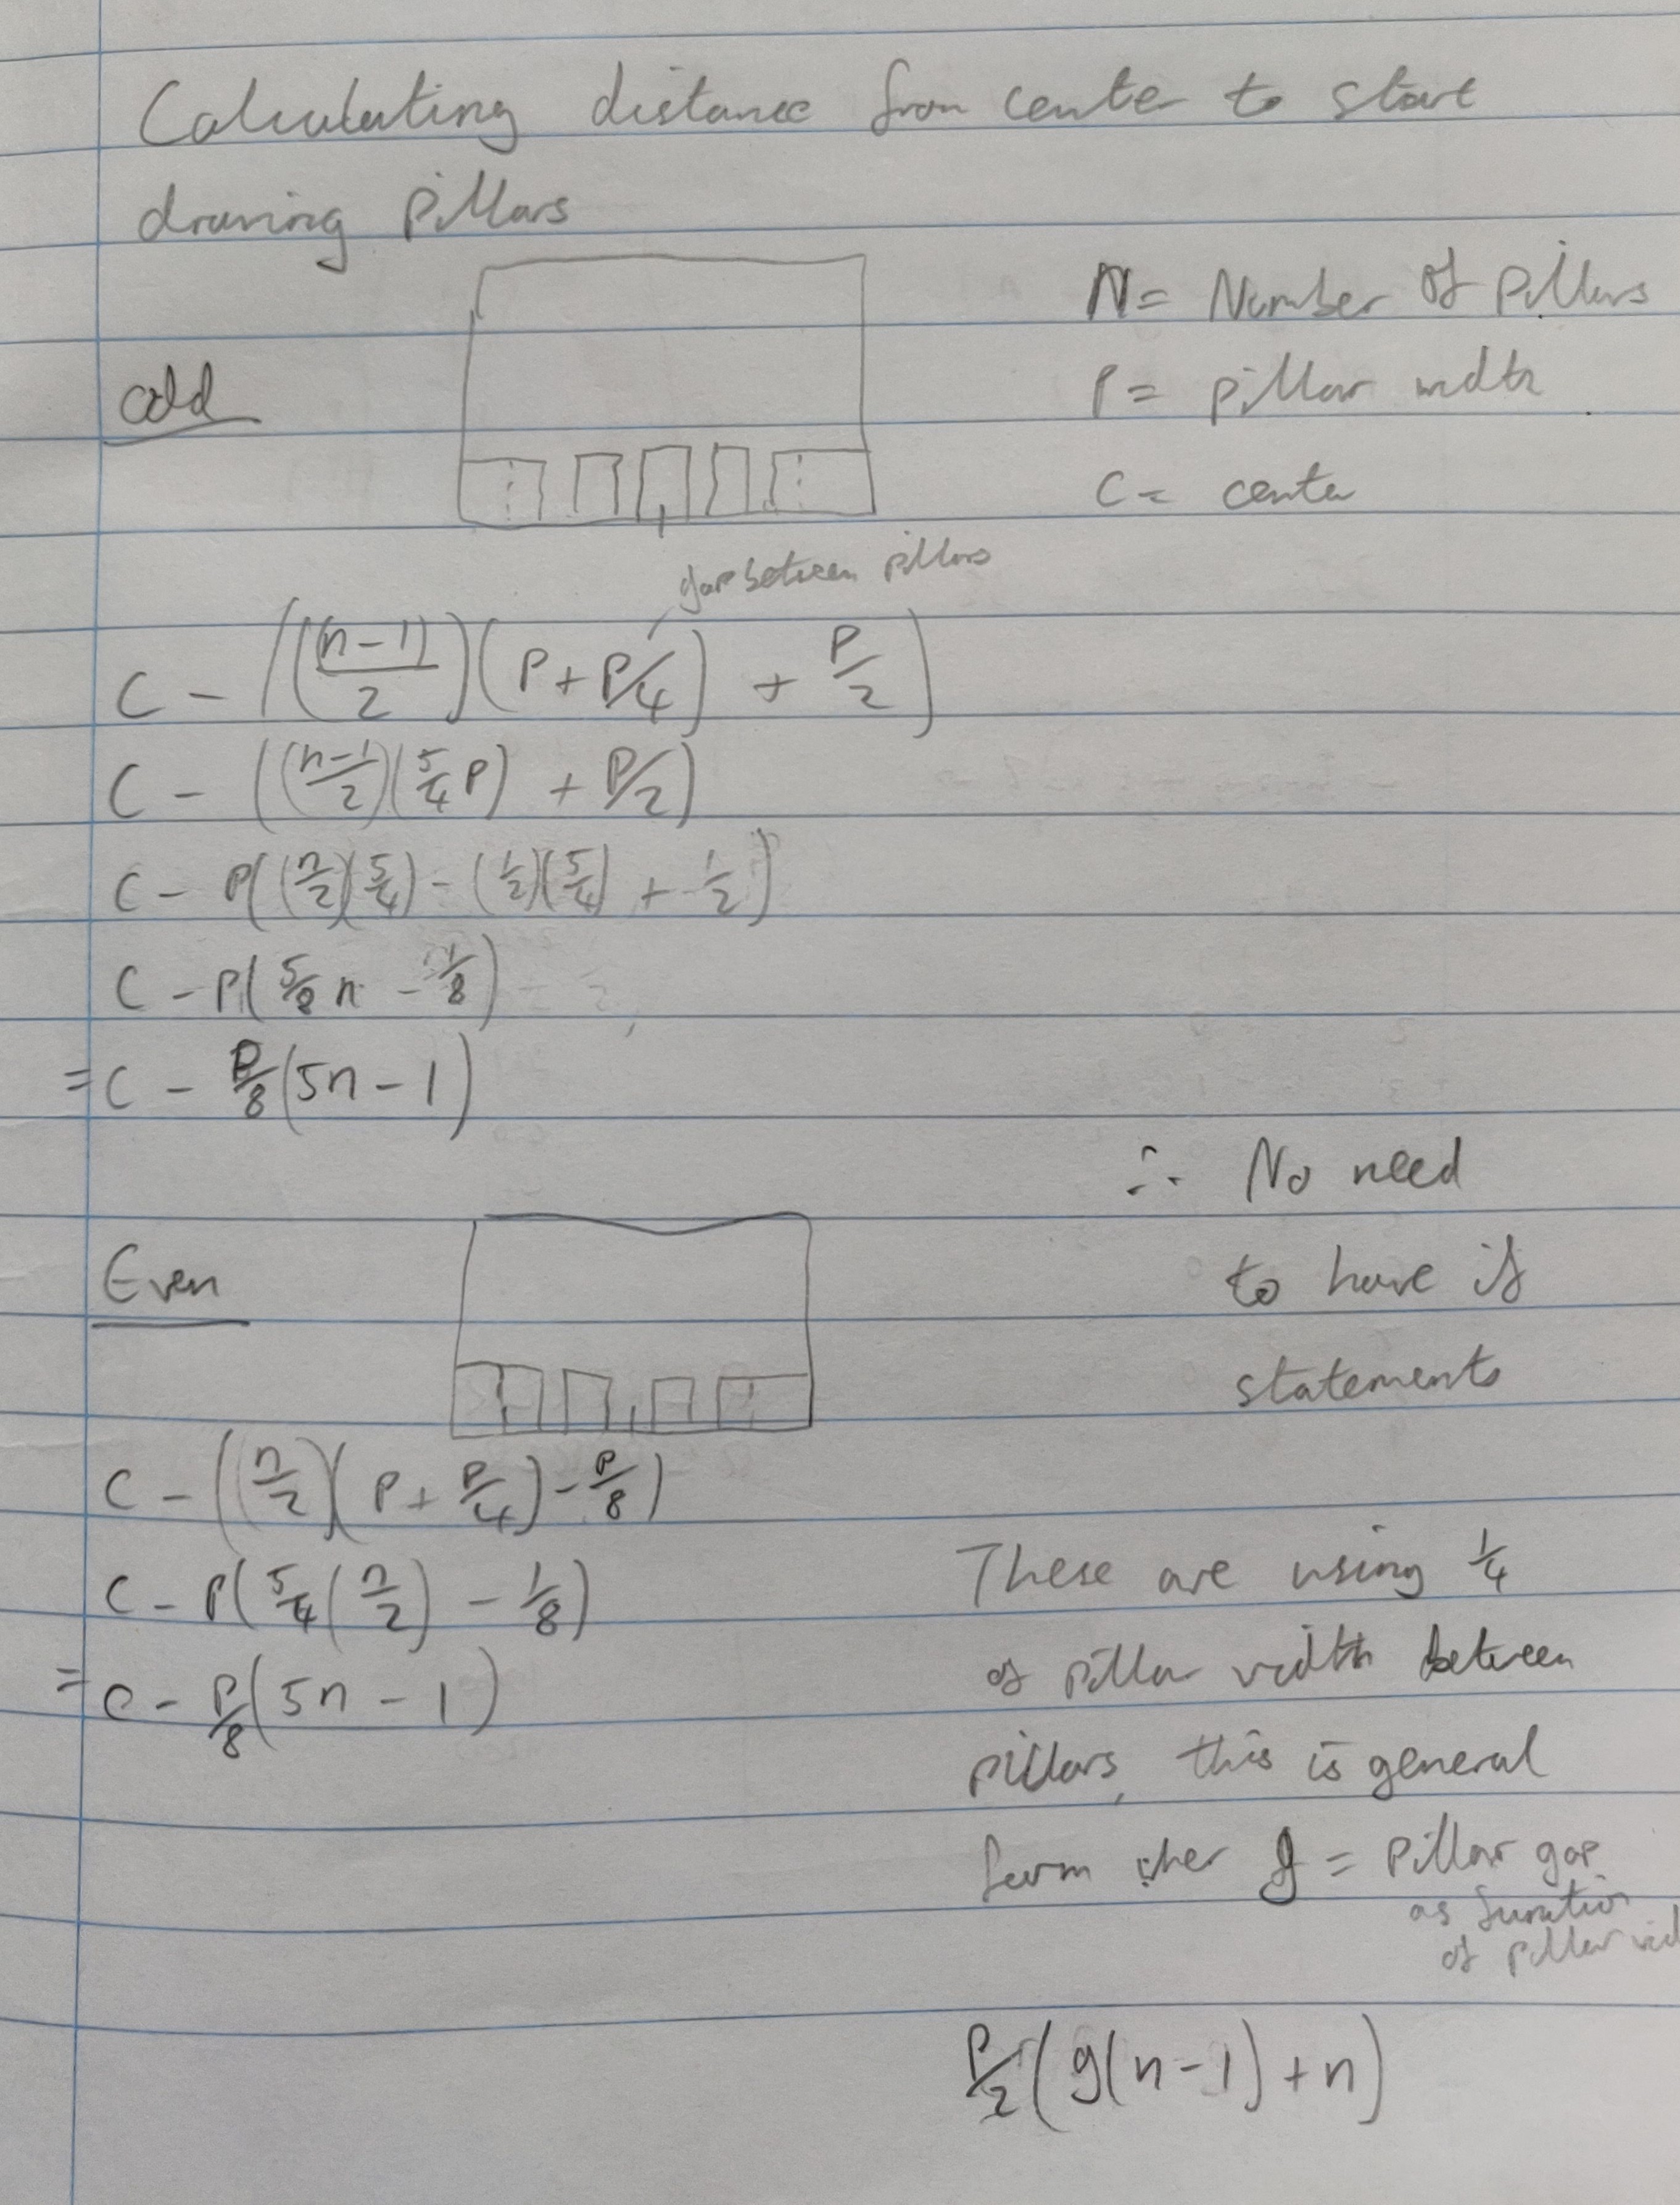 Calculating distance from center to start
drawing pillars
N = Number of pillars
P = pillar width
C = center
odd
gap between pillars
C - (((n-1)/2)(P + P/4) + P/2)
C - ((n-1/2)(5/4 P) + P/2)
C - P((n/2)(5/4) - (1/2)(5/4) + 1/2)
C - P(5/8 n - 1/8)
= C - P/8(5n - 1)
∴ No need
to have if
statements
Even
C - ((n/2)(P + P/4) - P/8)
C - P(5/4(n/2) - 1/8)
= C - P/8(5n - 1)
These are using 1/4
of pillar width between
pillars, this is general
form wher g = pillar gap
as function
of pillar wid
P/2(g(n-1) + n)